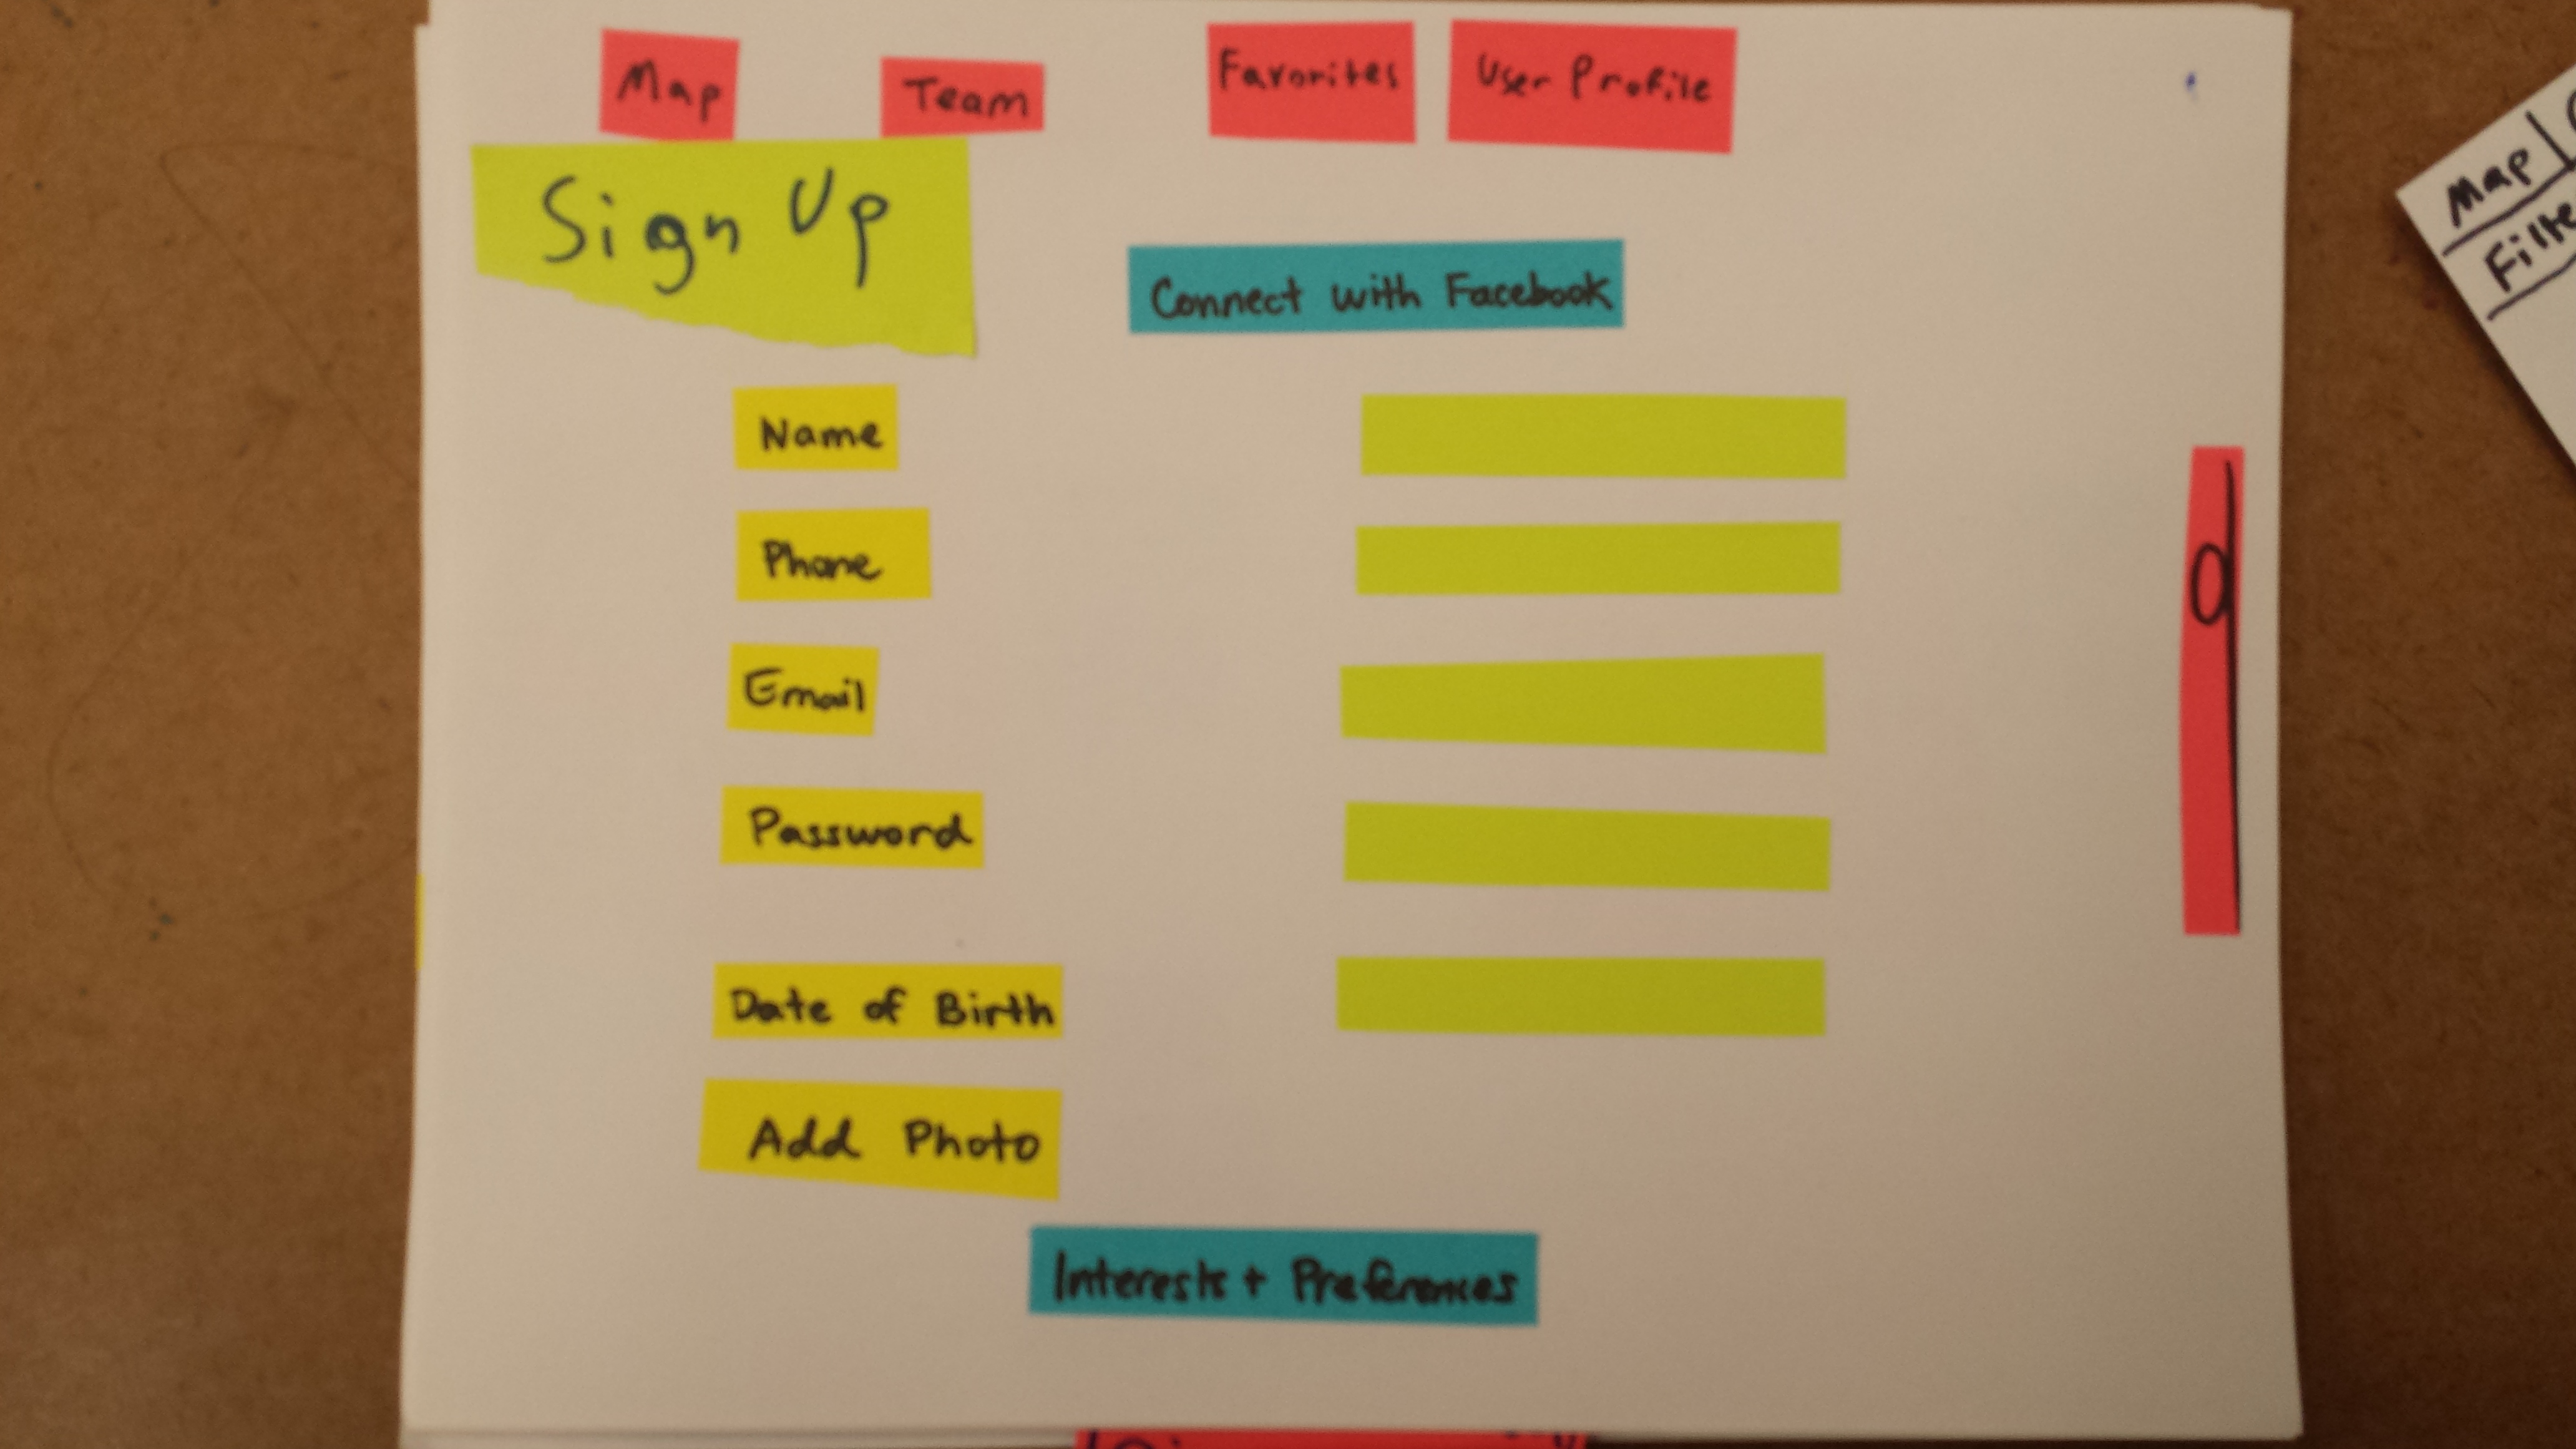 Map Team Favorites User Profile
Sign Up
Connect with Facebook
Name
Phone
Email
Password
Date of Birth
Add Photo
Interests + Preferences
Map